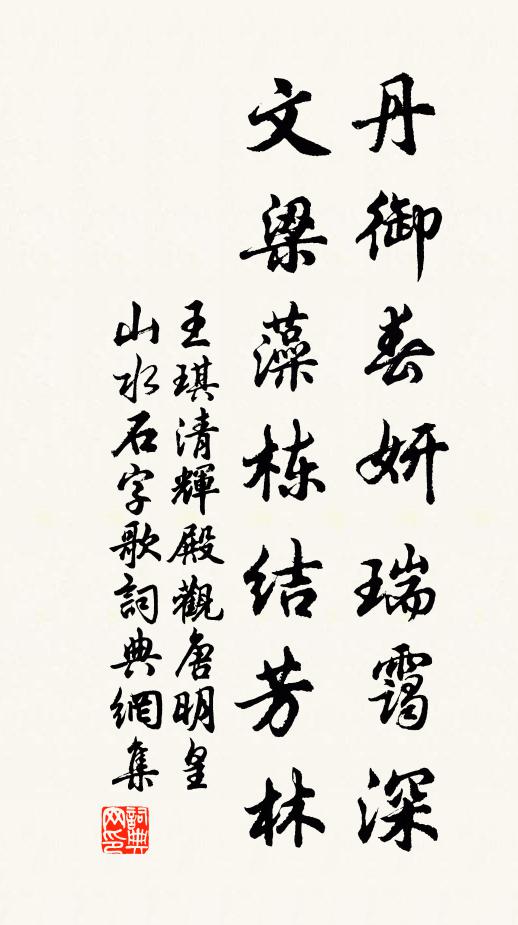 丹御春妍瑞靄深
文梁藻栋结芳林
王琪清輝殿觀唐明皇
山水石字歌詞典網集
詞典网印